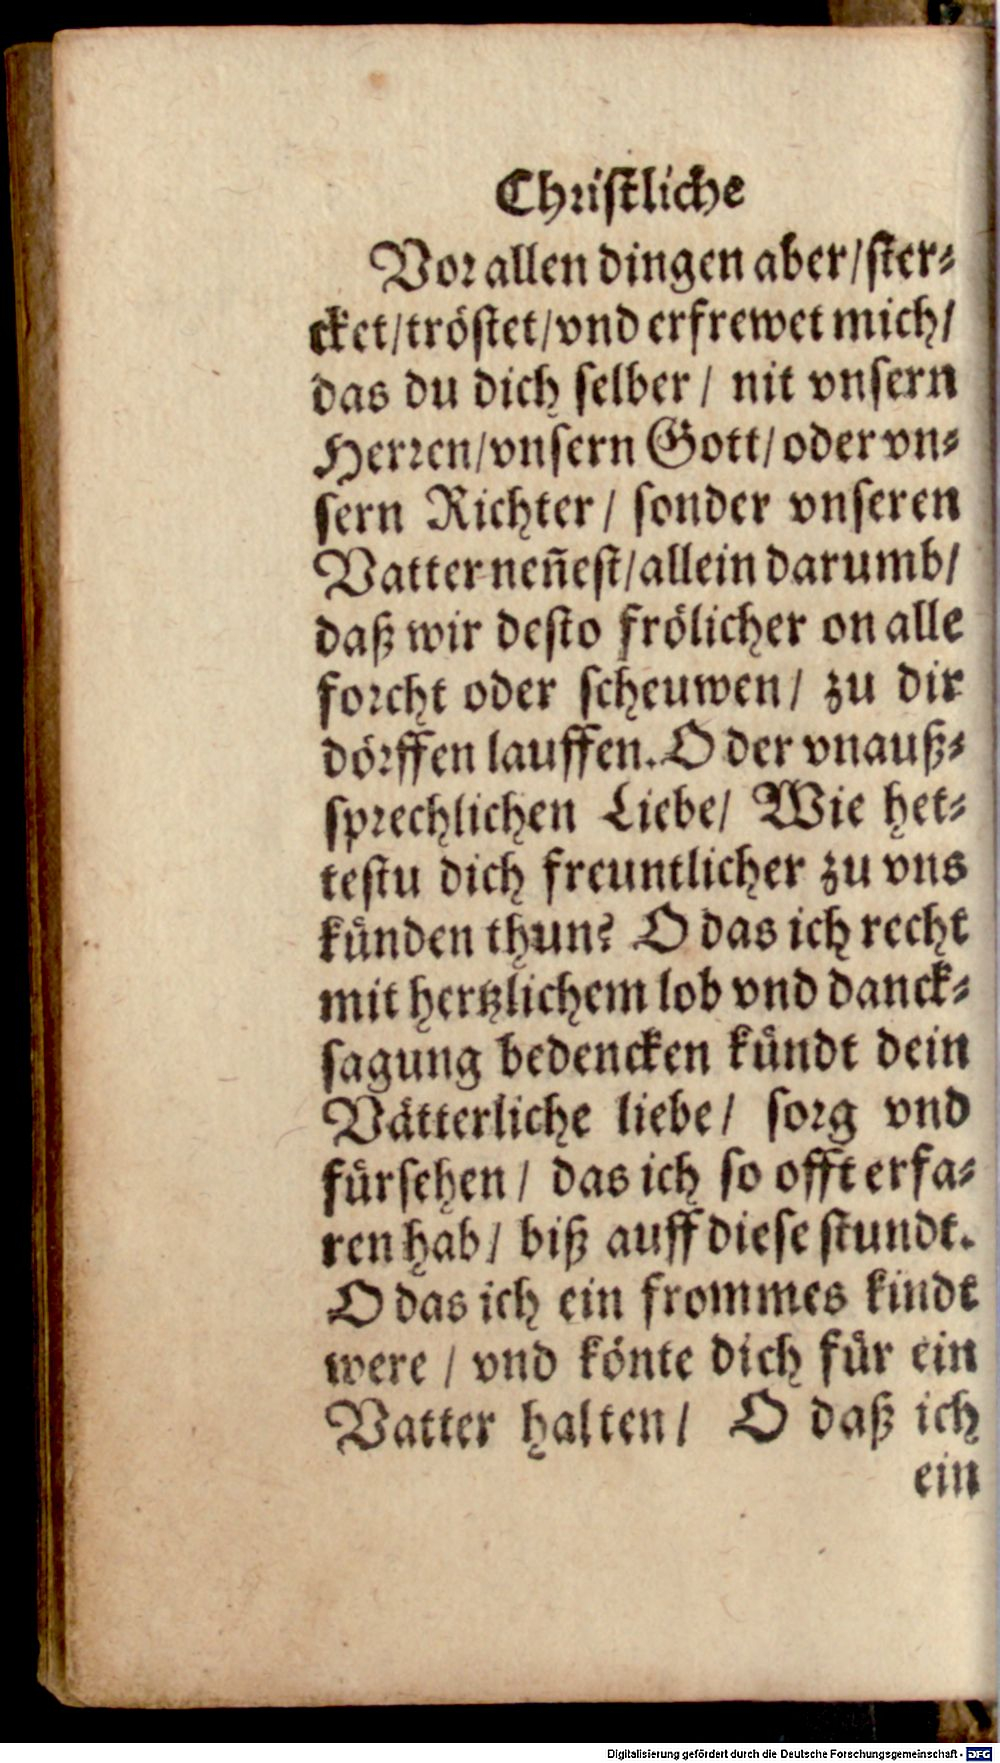 Christliche
Vor allen dingen aber/ ster⸗
cket/ tröstet/ vnd erfrewet mich/
das du dich selber / nit vnsern
Herren/ vnsern Gott/ oder vn⸗
sern Richter / sonder vnseren
Vatter neñest/ allein darumb/
daß wir desto frölicher on alle
forcht oder scheuwen/ zu dir
dörffen lauffen. O der vnauß⸗
sprechlichen Liebe/ Wie het⸗
testu dich freuntlicher zu vns
künden thun? O das ich recht
mit hertzlichem lob vnd danck⸗
sagung bedencken kündt dein
Vätterliche liebe/ sorg vnd
fürsehen / das ich so offt erfa⸗
ren hab/ biß auff diese stundt.
O das ich ein frommes kindt
were / vnd könte dich für ein
Vatter halten/ O daß ich
ein
Digitalisierung gefördert durch die Deutsche Forschungsgemeinschaft - DFG